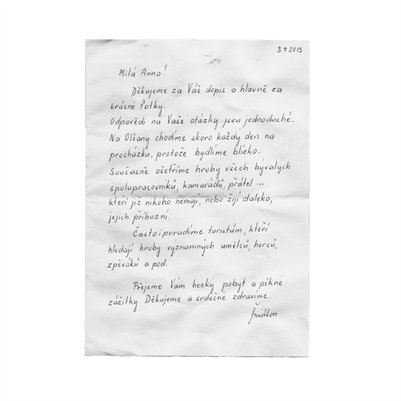 3.7.2013
Milá Anno!
Děkujeme za Váš dopis a hlavně za
krásné fotky.
Odpověďi na Vaše otázky jsou jednoduché.
Na Olšany chodíme skoro každý den na
procházku, protože bydlíme blízko.
Současně ošetříme hroby všech bývalých
spolupracovníků, kamarádů, přátel ...
kteří již nikoho nemají, nebo žijí daleko,
jejich příbuzní.
Často i poradíme turistům, kteří
hledají hroby významných umělců, herců,
zpěváků a pod.
Přejeme Vám hezký pobyt a pěkné
zážitky. Děkujeme a srdečně zdravíme.